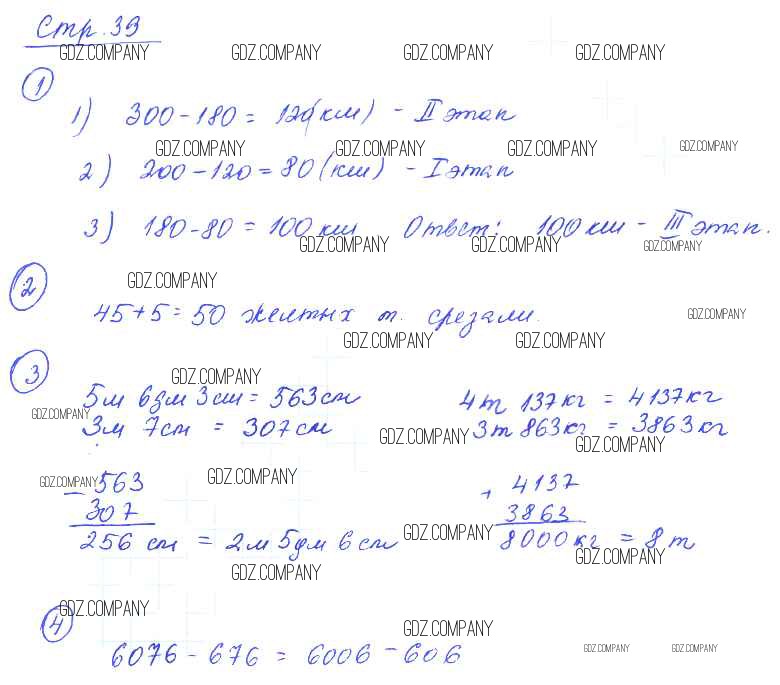 Стр. 39
GDZ.COMPANY GDZ.COMPANY GDZ.COMPANY GDZ.COMPANY
1
1) 300 - 180 = 120(км) - II этап
GDZ.COMPANY GDZ.COMPANY GDZ.COMPANY GDZ.COMPANY
2) 200 - 120 = 80 (км) - I этап
3) 180 - 80 = 100 км Ответ: 100 км - III этап.
GDZ.COMPANY GDZ.COMPANY GDZ.COMPANY
2 GDZ.COMPANY
45 + 5 = 50 желтых т. срезали.
GDZ.COMPANY
GDZ.COMPANY GDZ.COMPANY
3 GDZ.COMPANY
5м 6дм 3см = 563см 4т 137кг = 4137кг
GDZ.COMPANY
3м 7см = 307см 3т 863кг = 3863кг
GDZ.COMPANY GDZ.COMPANY
GDZ.COMPANY - 563 GDZ.COMPANY + 4137
307 3863
256 см = 2м 5дм 6см GDZ.COMPANY 8000кг = 8т
GDZ.COMPANY GDZ.COMPANY
GDZ.COMPANY
4 GDZ.COMPANY
6076 - 676 = 6006 - 606
GDZ.COMPANY GDZ.COMPANY